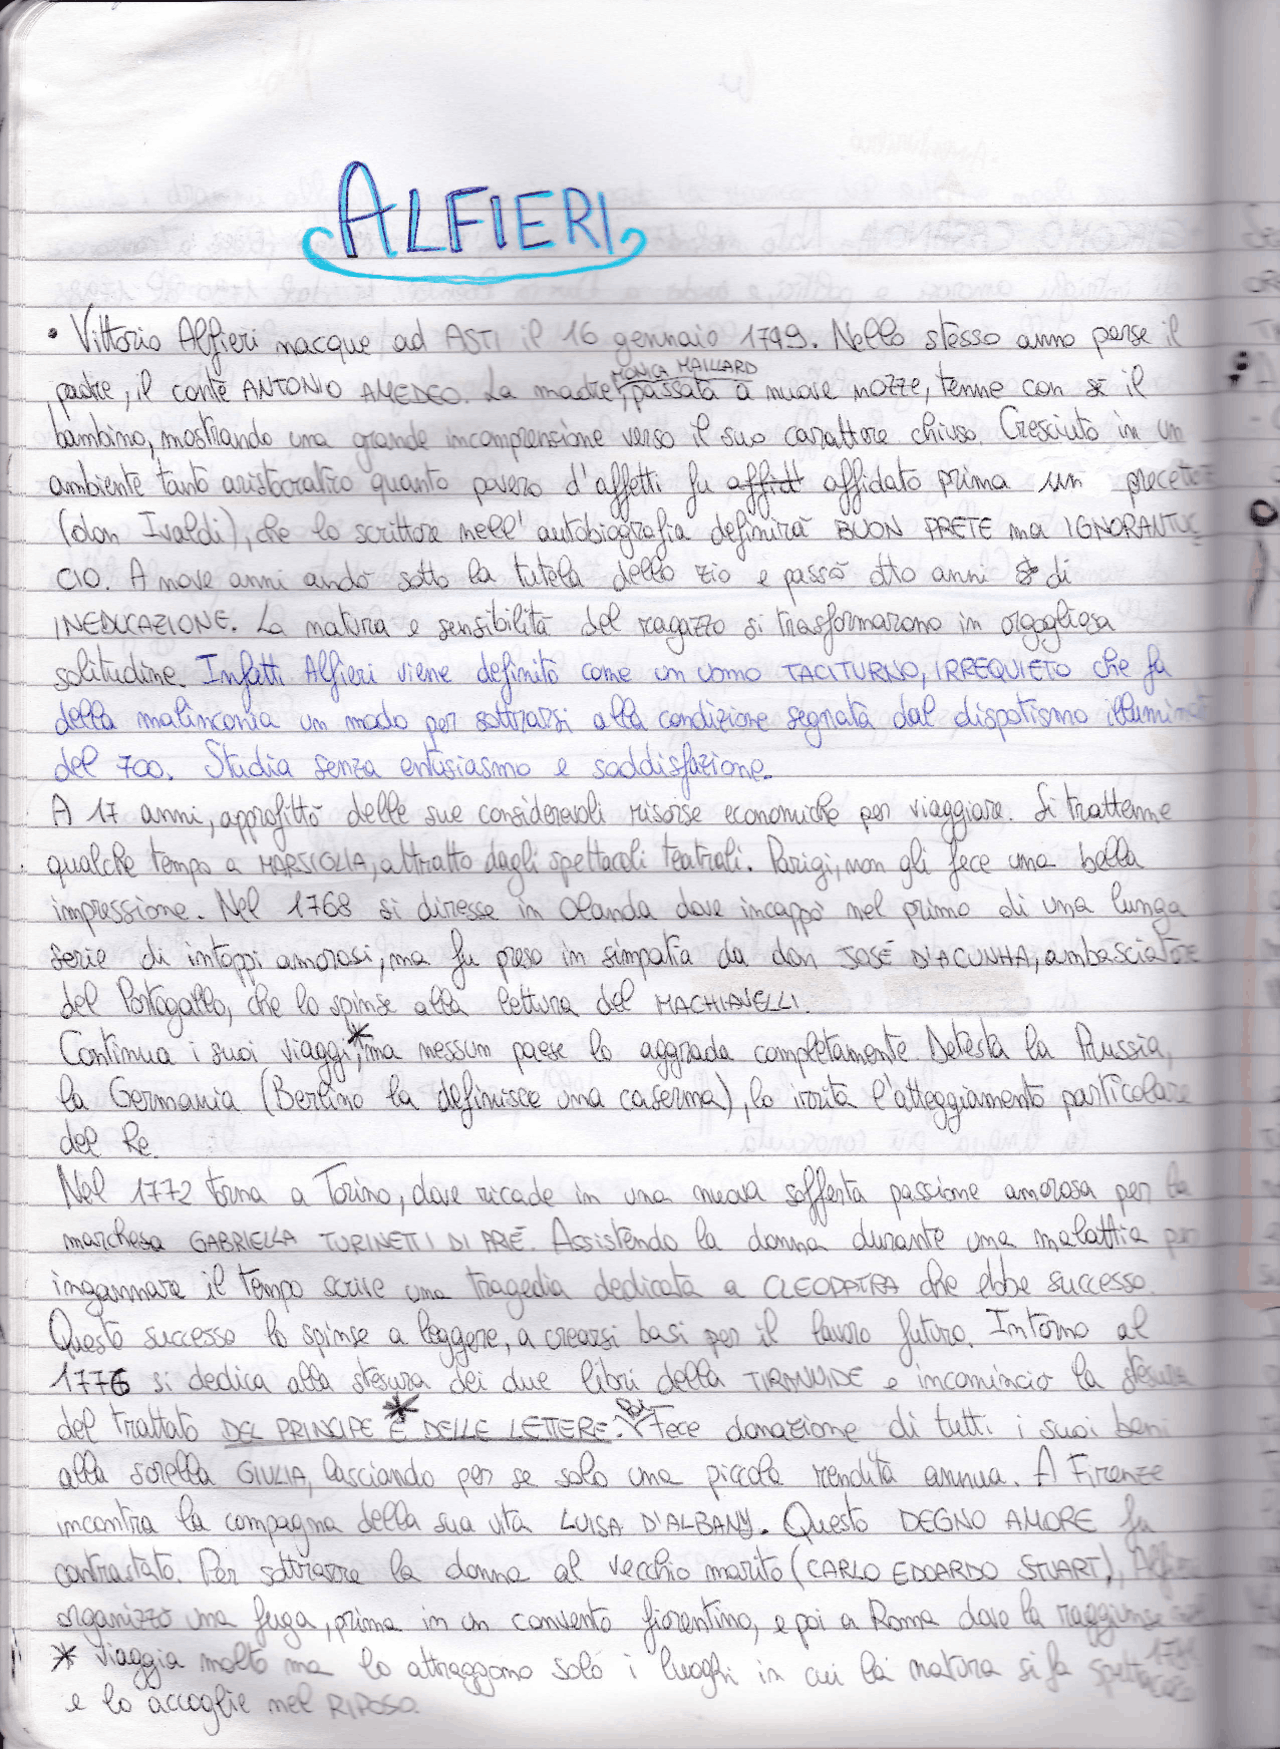 ALFIERI
• Vittorio Alfieri nacque ad ASTI il 16 gennaio 1749. Nello stesso anno perse il
MONICA MAILLARD
padre, il conte ANTONIO AMEDEO. La madre, passata a nuove nozze, tenne con sé il
bambino, mostrando una grande incomprensione verso il suo carattere chiuso. Cresciuto in un
ambiente tanto aristocratico quanto povero d'affetti fu affidt affidato prima un
(don Ivaldi), che lo scrittore nell' autobiografia definirà BUON PRETE ma IGNORANTUC
CIO. A nove anni andò sotto la tutela dello zio e passò otto anni di
INEDUCAZIONE. La natura e sensibilità del ragazzo si trasformarono in orgogliosa
solitudine. Infatti Alfieri viene definito come un uomo TACITURNO, IRREQUIETO che fa
della malinconia un modo per sottrarsi alla condizione segnata dal dispotismo
del 700. Studia senza entusiasmo e soddisfazione.
A 17 anni, approfittò delle sue considerevoli risorse economiche per viaggiare. Si trattenne
qualche tempo a MARSIGLIA, attratto dagli spettacoli teatrali. Parigi, non gli fece una bella
impressione. Nel 1768 si diresse in Olanda dove incappò nel primo di una lunga
serie di intoppi amorosi, ma fu preso in simpatia da don JOSÉ D'ACUNHA, ambasciatore
del Portogallo, che lo spinse alla lettura del MACHIAVELLI.
Continua i suoi viaggi,* ma nessun paese lo aggrada completamente. Detesta la Prussia,
la Germania (Berlino la definisce una caserma), lo irrita l'atteggiamento particolare
del Re.
Nel 1772 torna a Torino, dove ricade in una nuova sofferta passione amorosa per la
marchesa GABRIELLA TURINETTI DI PRIÈ. Assistendo la donna durante una malattia per
ingannare il tempo scrive una tragedia dedicata a CLEOPATRA che ebbe successo.
Questo successo lo spinse a leggere, a crearsi basi per il lavoro futuro. Intorno al
1776 si dedica alla stesura dei due libri della TIRANNIDE e incominciò la stesura
del trattato DEL PRINCIPE E DELLE LETTERE.* Poi Fece donazione di tutti i suoi beni
alla sorella GIULIA, lasciando per se solo una piccola rendita annua. A Firenze
incontra la compagna della sua vita LUISA D'ALBANY. Questo DEGNO AMORE fu
contrastato. Per sottrarre la donna al vecchio marito (CARLO EDOARDO STUART), Alfieri
organizzò una fuga, prima in un convento fiorentino, e poi a Roma dove la raggiunse nel
1781
* Viaggia molto ma lo attraggono solo i luoghi in cui la natura si fa spettacolo
e lo accoglie nel RIPOSO.